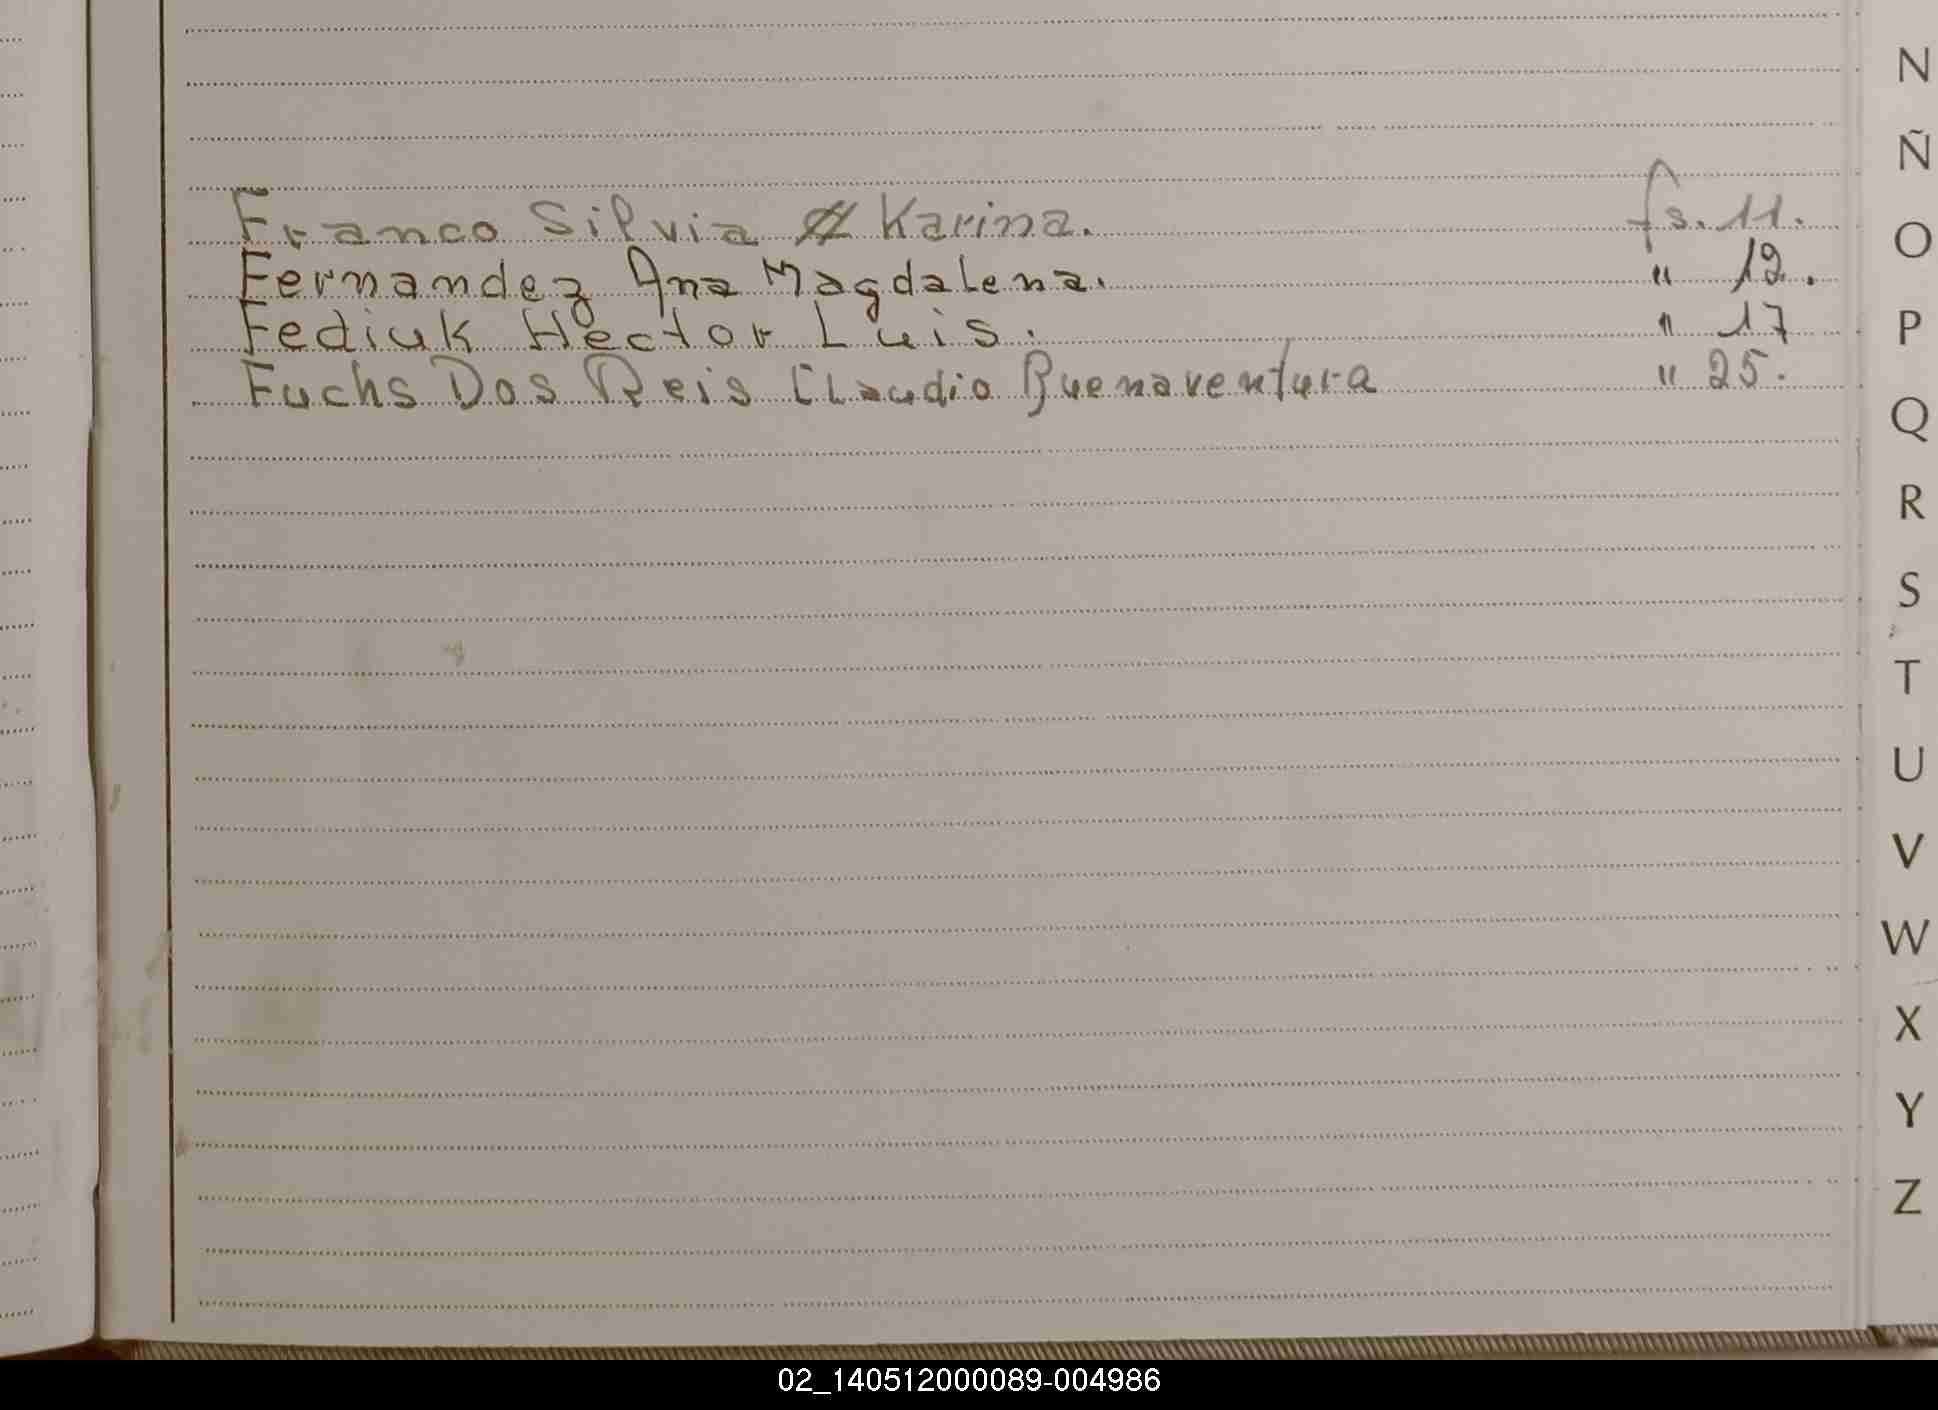 Franco Silvia Karina. fs. 11.
Fernandez Ana Magdalena. " 12.
Fediuk Hector Luis. " 17
Fuchs Dos Reis Claudio Buenaventura " 25.
N
Ñ
O
P
Q
R
S
T
U
V
W
X
Y
Z
02_140512000089-004986